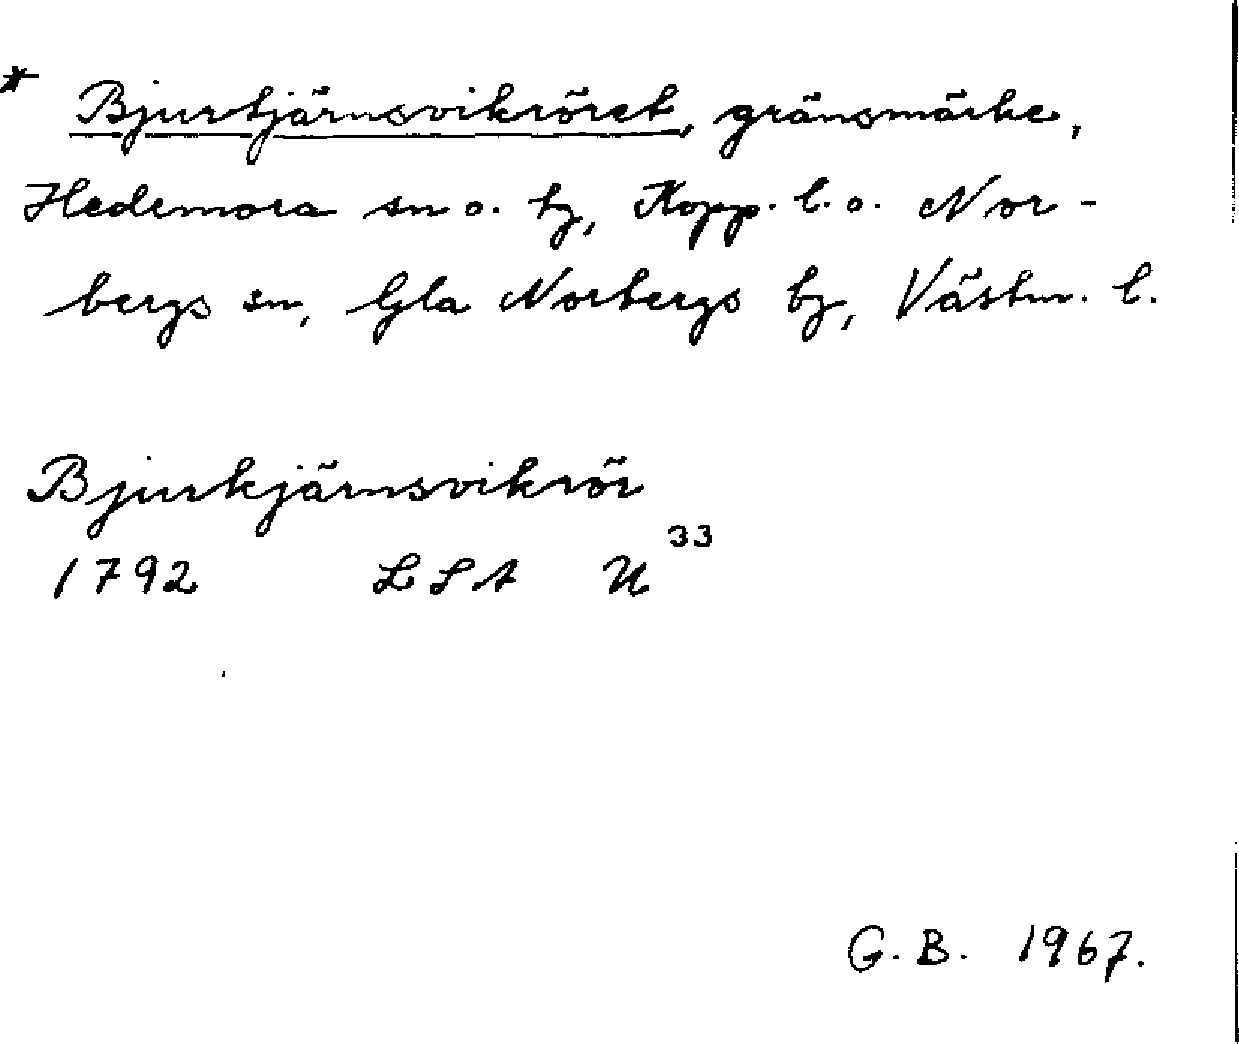 * Bjurtjärnsvikröret, gränsmärke,
Hedemora sn o. hg, Kopp. l. o. Nor-
bergs sn, Gla Norbergs bg, Västm. l.
Bjurkjärnsvikrör
1792 LSA U 33
G. B. 1967.